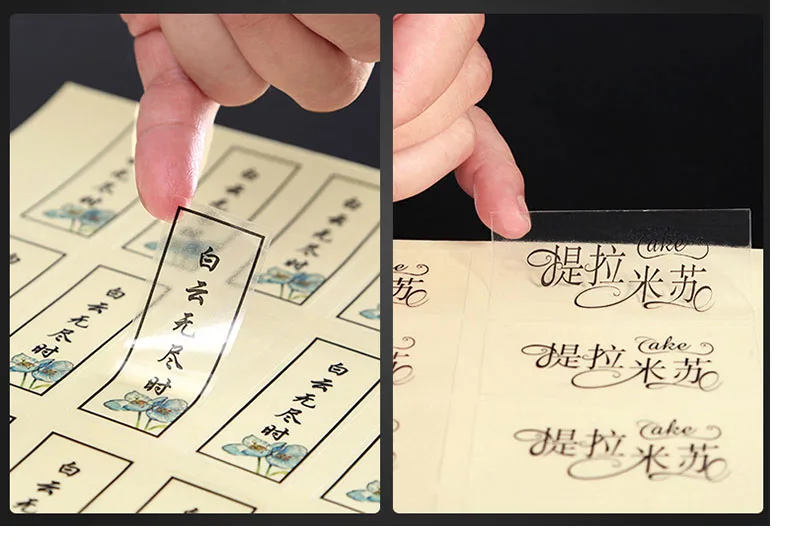 白云无尽时
白云无尽时
白云无尽时
白云无尽时
白云无尽时
白云无
Cake
提拉米苏
苏
Cake
提拉米苏
Cake
提拉米苏